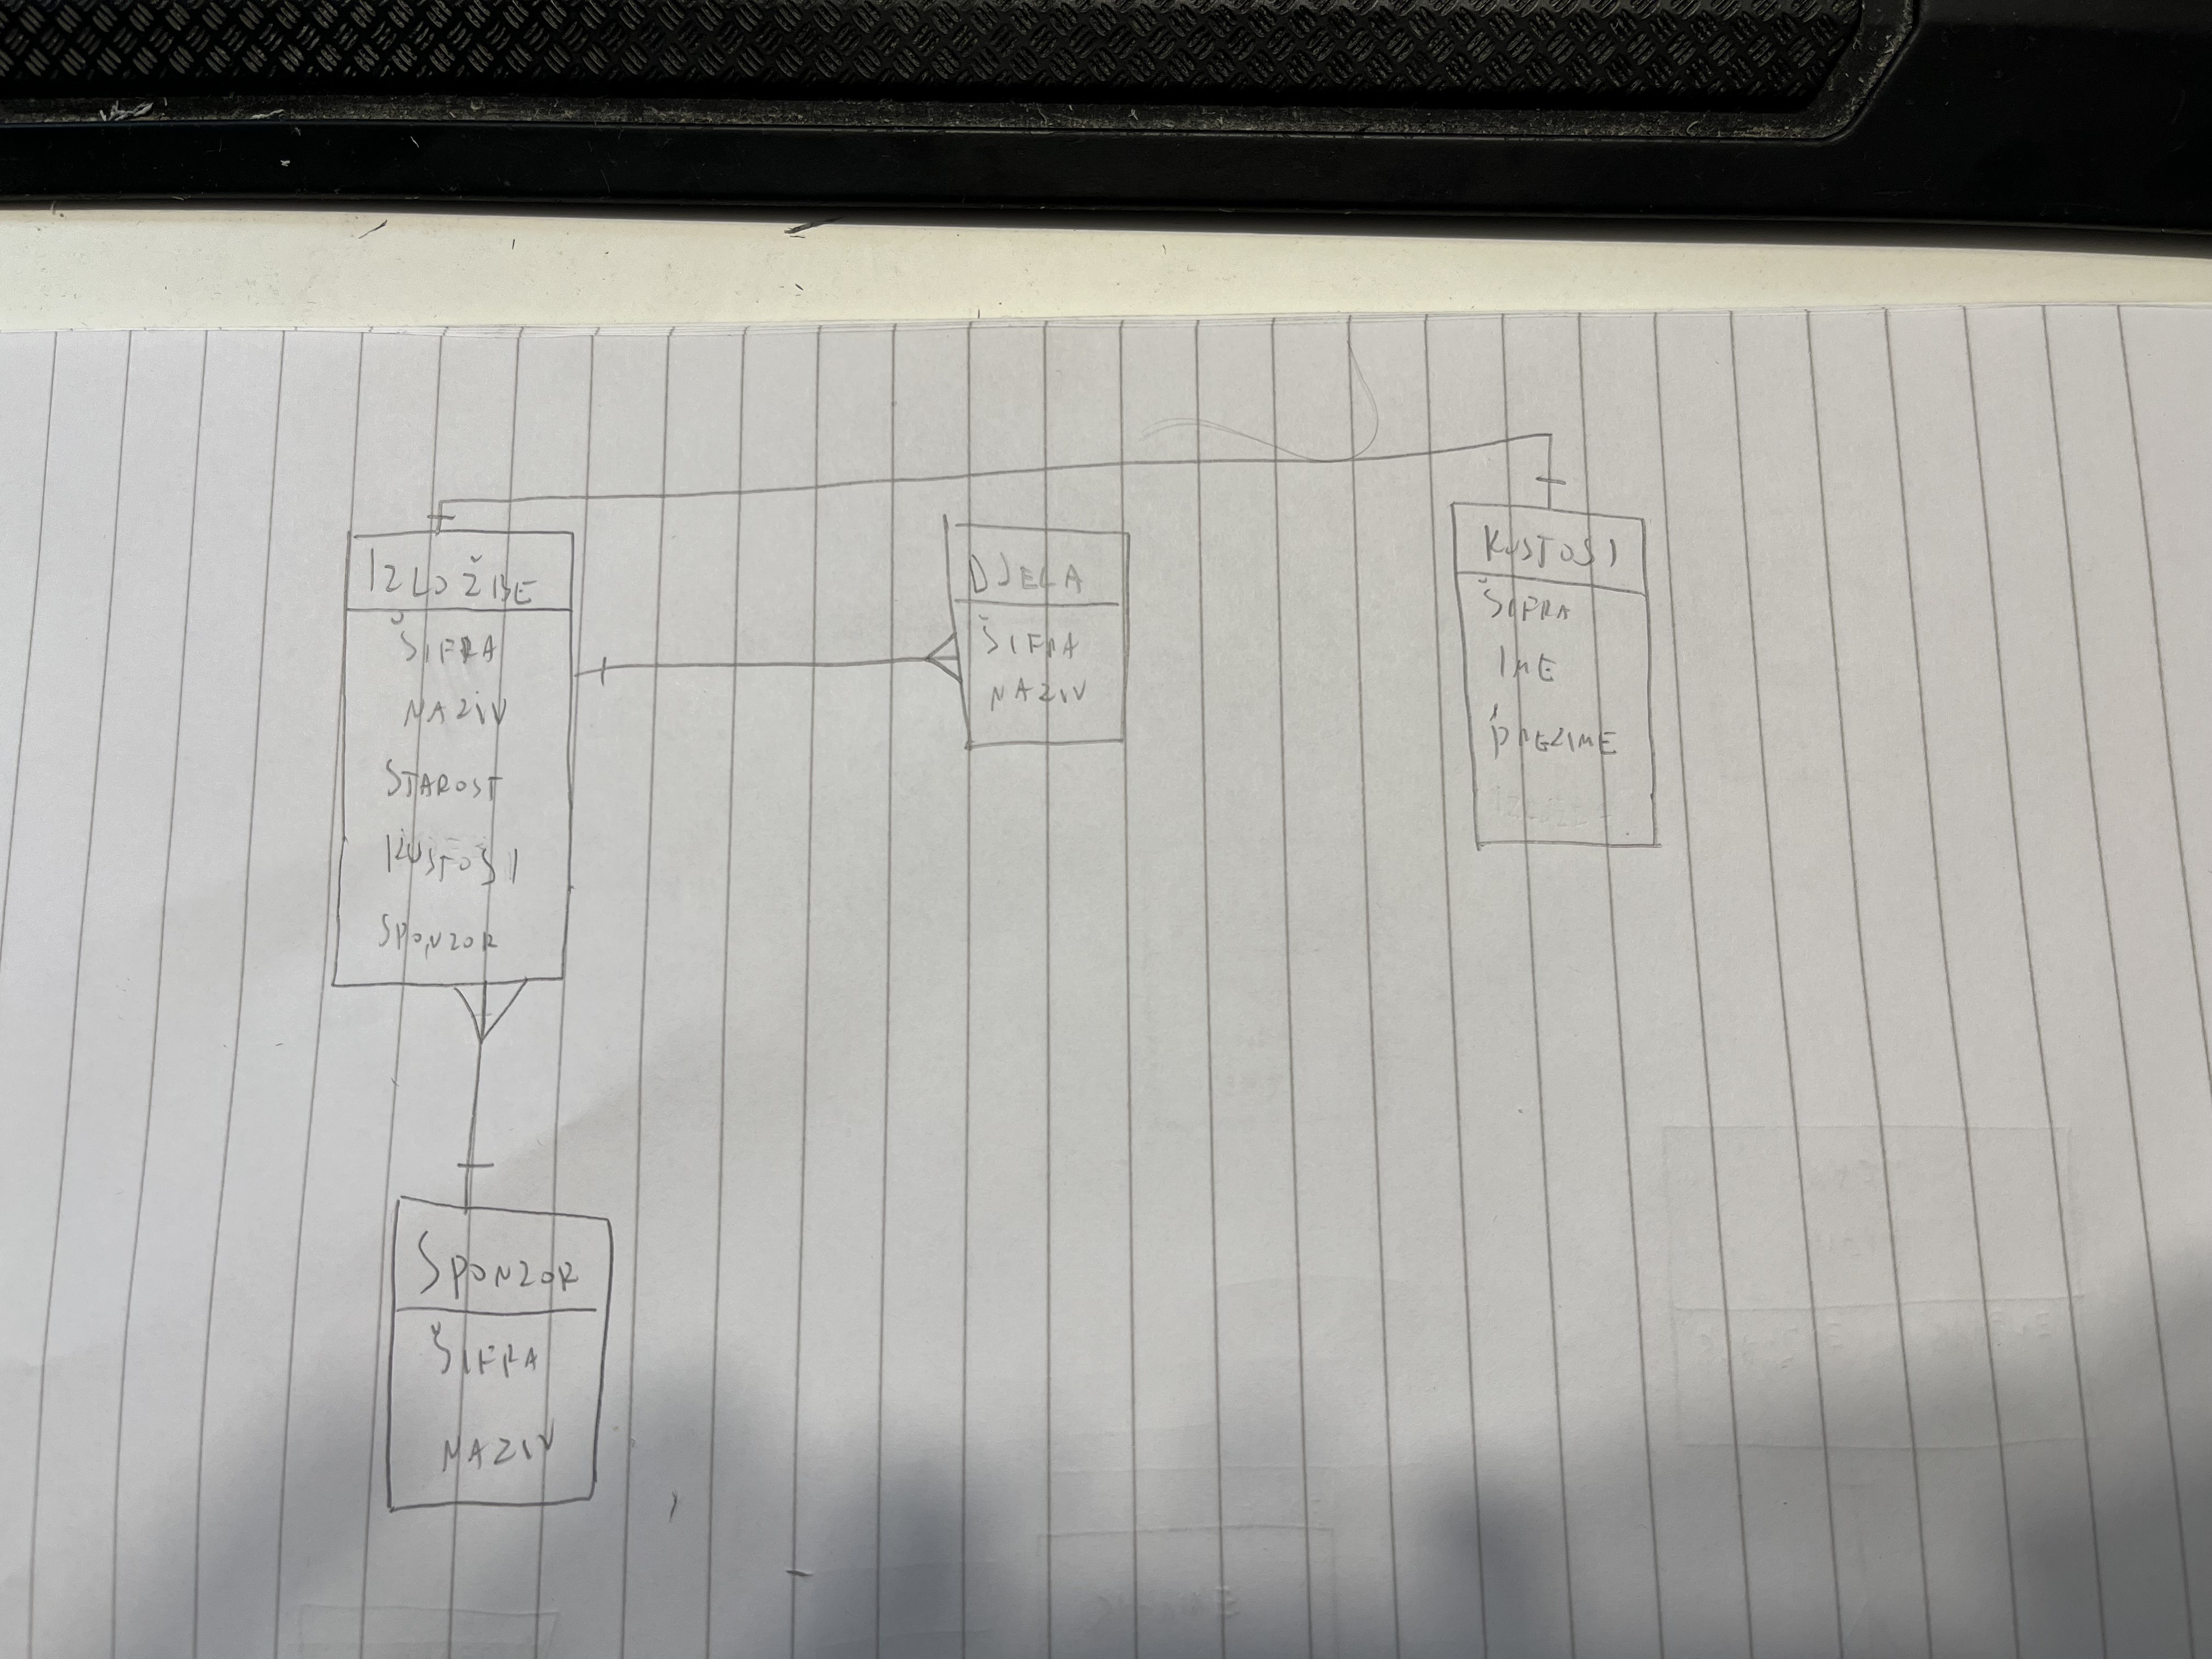 IZLOŽBE
ŠIFRA
NAZIV
STAROST
KUSTOSI
SPONZOR
DJELA
ŠIFRA
NAZIV
KUSTOSI
ŠIFRA
IME
PREZIME
SPONZOR
ŠIFRA
NAZIV